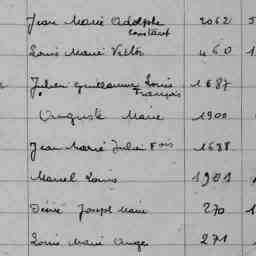 Jean Marie Adolphe 2062 5
Constant
Louis Marie Victor 460 1
Julien Guillaume Louis 1687
François
Auguste Marie 1900
Jean Marie Julien Fois 1698
Marcel Louis 1901
Désiré Joseph Marie 270 1
Louis Marie Ange 271